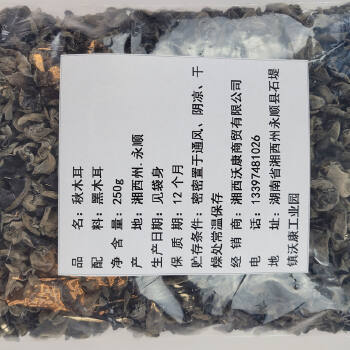 品 名：秋木耳
配 料：黑木耳
净 含 量：250g
产 地：湘西州.永顺
生产日期：见袋身
保 质 期：12个月
贮存条件：密密置于通风、阴凉、干
燥处常温保存
经 销 商：湘西沃康商贸有限公司
电 话：13397481026
地 址：湖南省湘西州永顺县石堤
镇沃康工业园